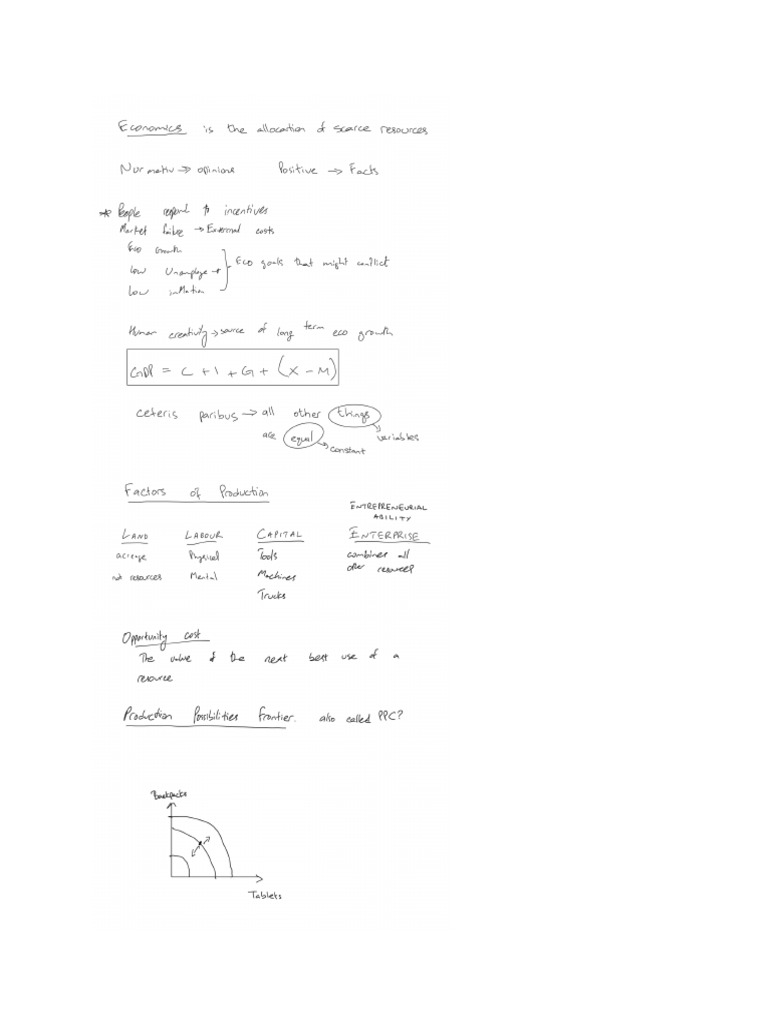 Economics is the allocation of scarce resources
Normativ → opinions Positive → Facts
* People respond to incentives
Market failure → External costs
Eco Growth
low Unemploye
low inflation
Eco goals that might conflict
Human creativity → source of long term eco growth
GDP = C + I + G + (X - M)
ceteris paribus → all other things
are equal
variables
constant
Factors of Production
ENTREPRENEURIAL
ABILITY
LAND LABOUR CAPITAL ENTERPRISE
acreage Physical Tools combines all
nat resources Mental Machines other resources
Trucks
Opportunity cost
The value of the next best use of a
resource
Production Possibilities Frontier. also called PPC?
Backpacks
Tablets